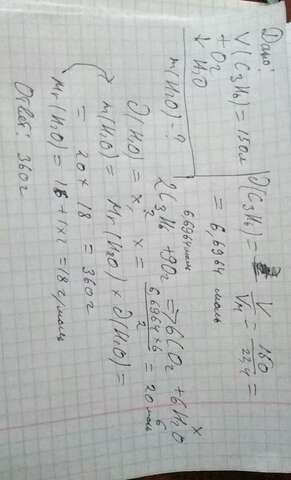 Дано:
V(C3H6) = 150л
+ O2
↓ H2O
m(H2O) - ?
ν(C3H6) = V/Vm = 150/22,4 =
= 6,6964 моль
6,6964моль x
2C3H6 + 9O2 => 6CO2 + 6H2O
2 6
ν(H2O) = x, x = 6,6964×6/2 = 20моль
m(H2O) = Mr(H2O) × ν(H2O) =
= 20 × 18 = 360г
Mr(H2O) = 16 + 1×2 = 18 г/моль
Ответ: 360г